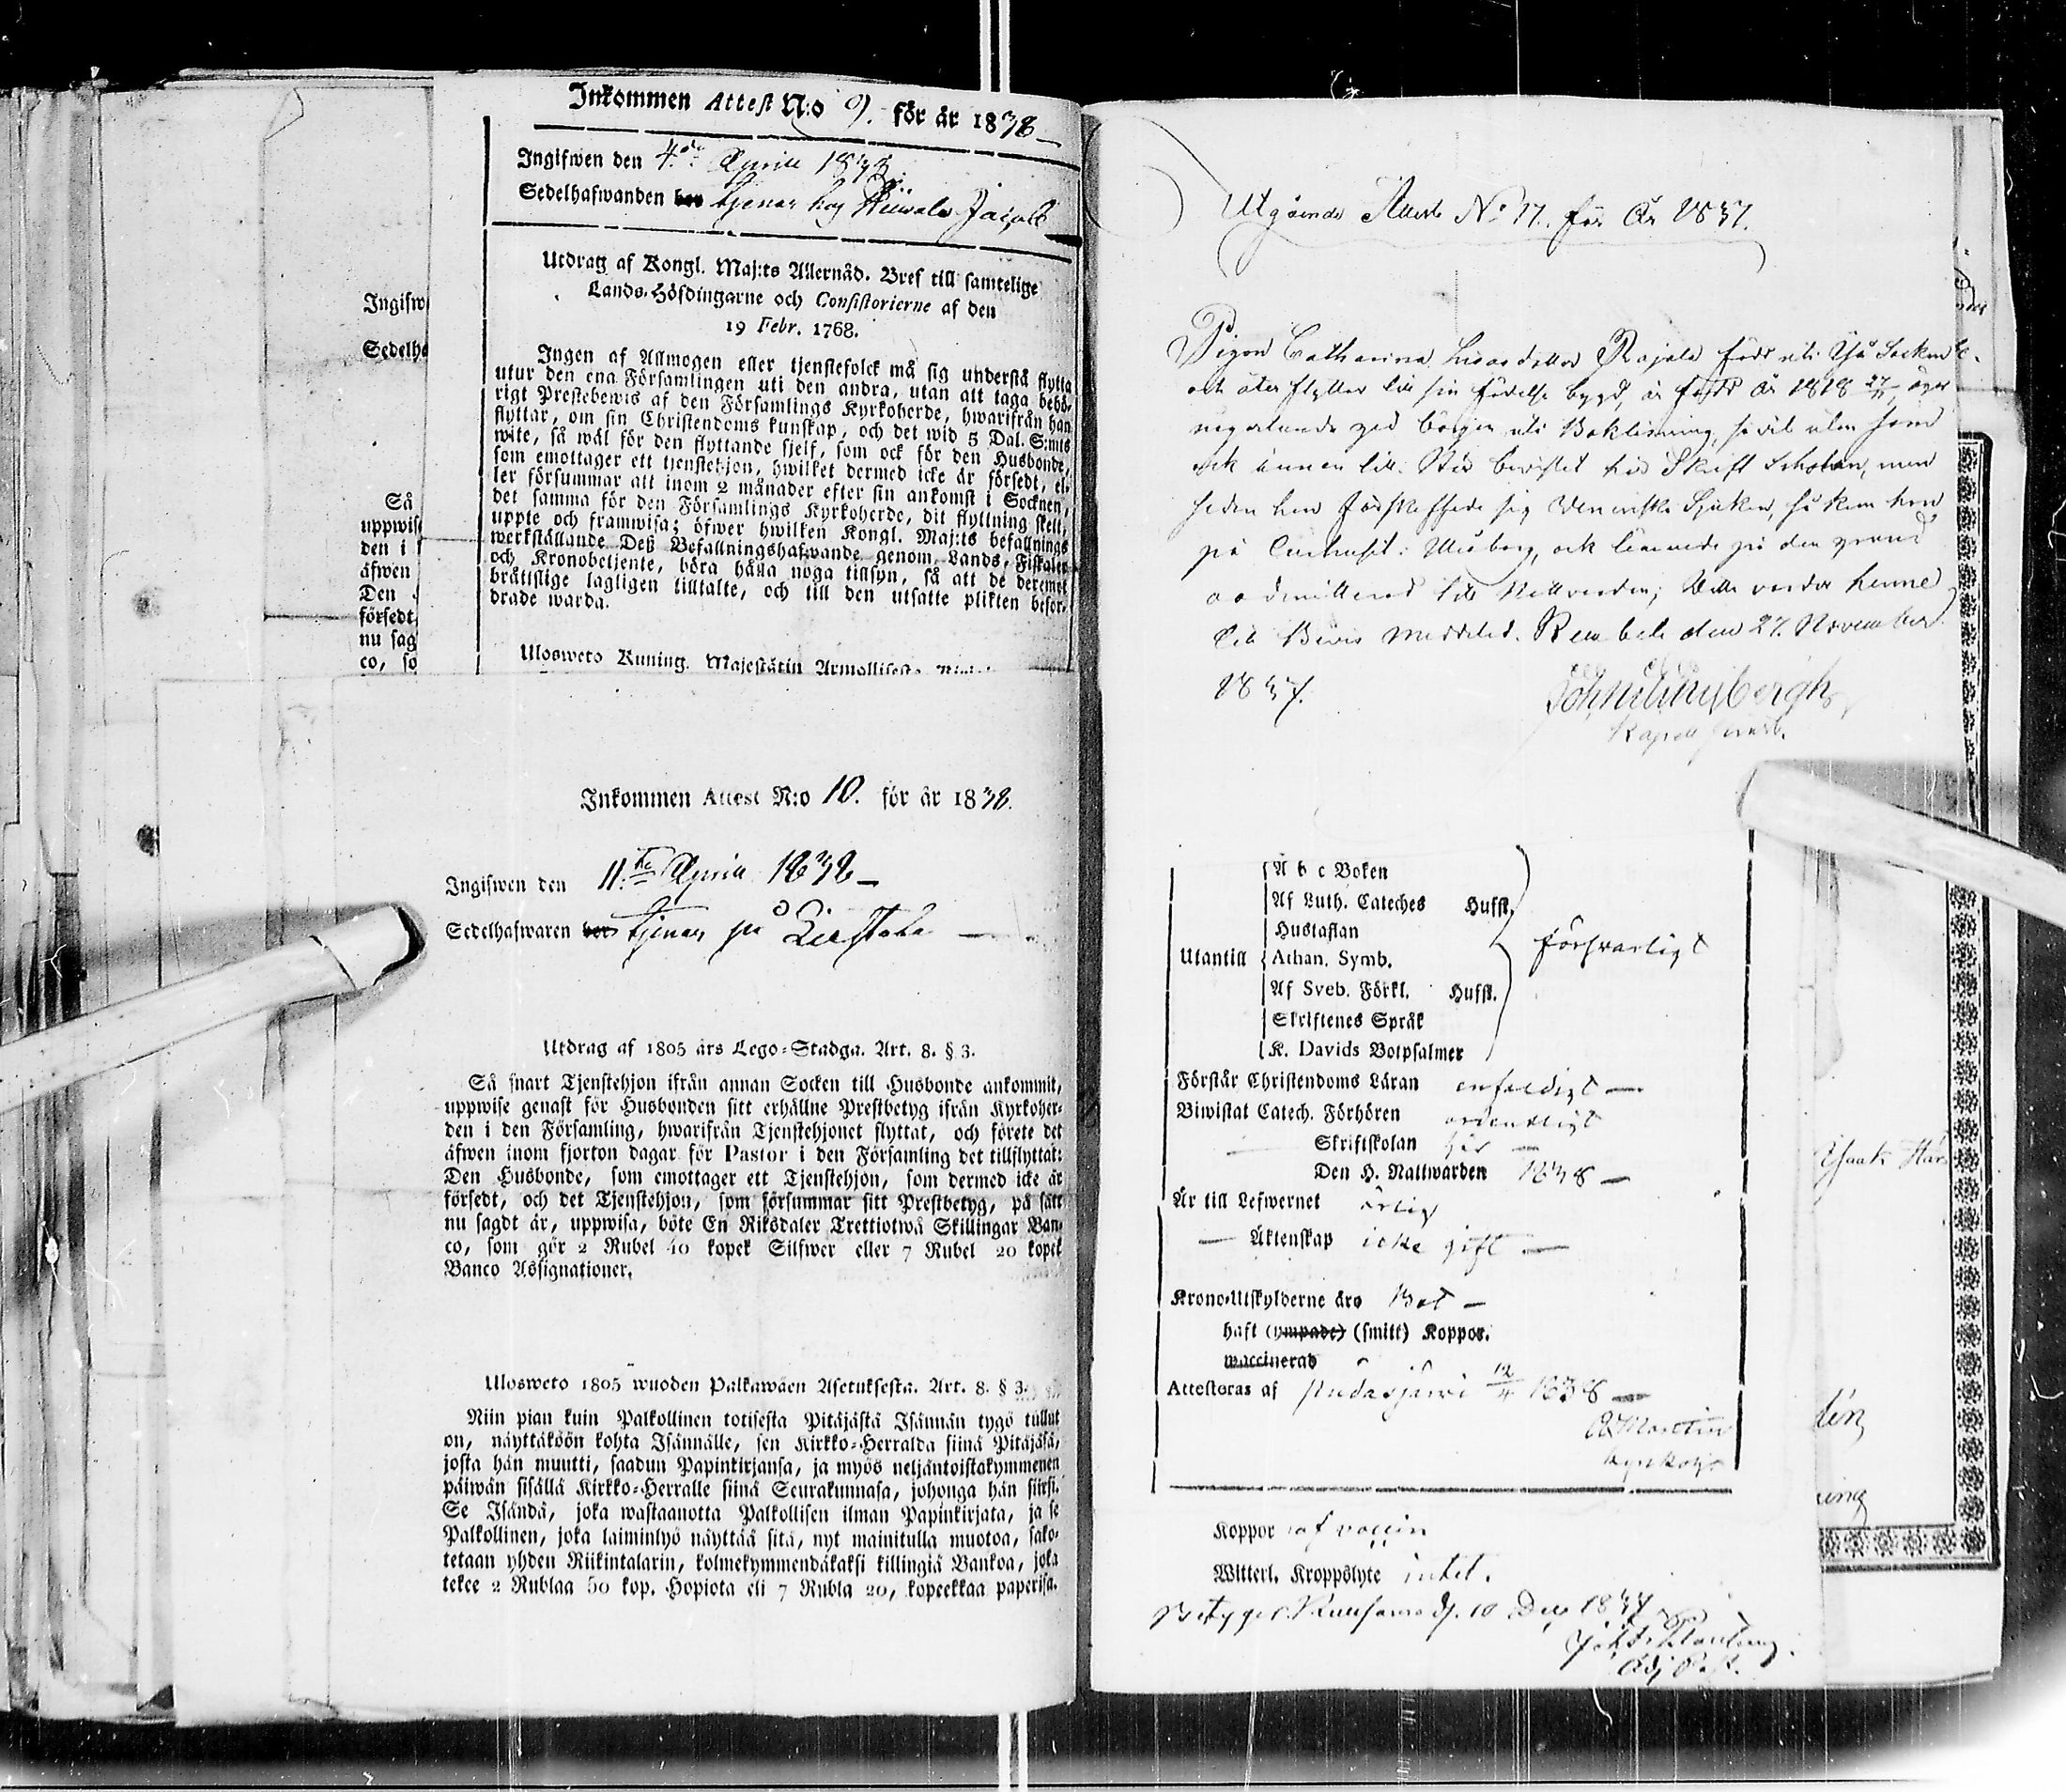 Inkommen Attest N:o 9. för år 1838
Ingifwen den 4de Aprill 1838.
Sedelhafwanden bor tjenar hos Jacob
Utdrag af Kongl. Maj:ts Allernåd. Bref till samtelige
Lands-Höfdingarne och Consistorierne af den
19 Febr. 1768.
Ingen af Allmogen eller tjenstefolck må sig understå flytta
utur den ena Församlingen uti den andra, utan att taga behö-
rigt Prestebewis af den Församlings Kyrkoherde, hwarifrån han
flyttar, om sin Christendoms kunskap, och det wid 5 Dal. S:mts
wite, så wäl för den flyttande sjelf, som ock för den Husbonde,
som emottager ett tjenstehjon, hwilket dermed icke är försedt, el-
ler försummar att inom 2 månader efter sin ankomst i Socknen,
det samma för den Församlings Kyrkoherde, dit flyttning skett,
uppte och framwisa; öfwer hwilken Kongl. Maj:ts befallnings
werkställande Deß Befallningshafwande genom Lands, Fiskaler
och Kronobetjente, böra hålla noga tillsyn, så att de deremot
bråttslige lagligen tilltalte, och till den utsatte plikten befor-
drade warda.
Ulosweto Kuning. Majestätin Armollisesta
Ingifw
Sedelha
Så
uppwis
den i
äfwen
Den
försedt,
nu sag
co, so
Inkommen Attest N:o 10. för år 1838.
Ingifwen den 11te Aprill 1838
Sedelhafwaren bor tjenar på
Utdrag af 1805 års Lego-Stadga. Art. 8. § 3.
Så snart Tjenstehjon ifrån annan Socken till Husbonde ankommit,
uppwise genast för Husbonden sitt erhållne Prestbetyg ifrån Kyrkoher-
den i den Församling, hwarifrån Tjenstehjonet flyttat, och förete det
äfwen inom fjorton dagar för Pastor i den Församling det tillflyttat:
Den Husbonde, som emottager ett Tjenstehjon, som dermed icke är
försedt, och det Tjenstehjon, som försummar sitt Prestbetyg, på sätt
nu sagdt är, uppwisa, böte En Riksdaler Trettiotwå Skillingar Ban-
co, som gör 2 Rubel 40 kopek Silfwer eller 7 Rubel 20 kopek
Banco Assignationer.
Ulosweto 1805 wuoden Palkawäen Asetuksesta. Art. 8. § 3.
Niin pian kuin Palkollinen totisesta Pitäjästä Isännän tygö tullut
on, näyttäköön kohta Isännälle, sen Kirkko-Herralda siinä Pitäjäsä,
josta hän muutti, saadun Papinkirjansa, ja myös neljäntoistakymmenen
päiwän sisällä Kirkko-Herralle siinä Seurakunnasa, johonga hän siirsi.
Se Isändä, joka wastaanotta Palkollisen ilman Papinkirjata, ja se
Palkollinen, joka laiminlyö näyttää sitä, nyt mainitulla muotoa, sako-
tetaan yhden Riikintalarin, kolmekymmendäkaksi killingiä Bankoa, joka
tekee 2 Rublaa 50 kop. Hopiota eli 7 Rubla 20, kopeekkaa paperisa.
Utgående Attest No 17. för År 1837.
Pigan Catharina Rajala född uti Socken
och åter flyttar till sin födelse bygd, är född År 1818 27/11, äger
uti Bokläsning, så väl utan som
ock innan till. Har bevistat här Skrift Scholan, men
sedan hon sig Veneriska Sjukan, så kom hon
på Curhuset i Uleåborg, och på den grund
till Nattvarden; Detta varder henne
till Bevis meddelat. den 27. November
1837.
A b c Boken
Af Luth. Cateches Hufst.
Hustaflan
Utantill Athan. Symb. försvarligt
Af Sveb. Förkl. Hufst.
Skriftenes Språk
K. Davids Botpsalmer
Förstår Christendoms Läran enfaldigt
Biwistat Catech. Förhören ordentligt
Skriftskolan här
Den H. Nattwarden 1838
Är till Lefwernet ärlig
Äktenskap icke gift
Krono-Utskylderne äro Bet
haft (ympade) (smitt) Koppor.
waccinerad
Attesteras af Pudasjärvi 12/4 1838
Koppor af vaccin
Witterl. Kroppslyte intet.
Betygar Kuusamo d. 10 Dec 1837
Adj Past.